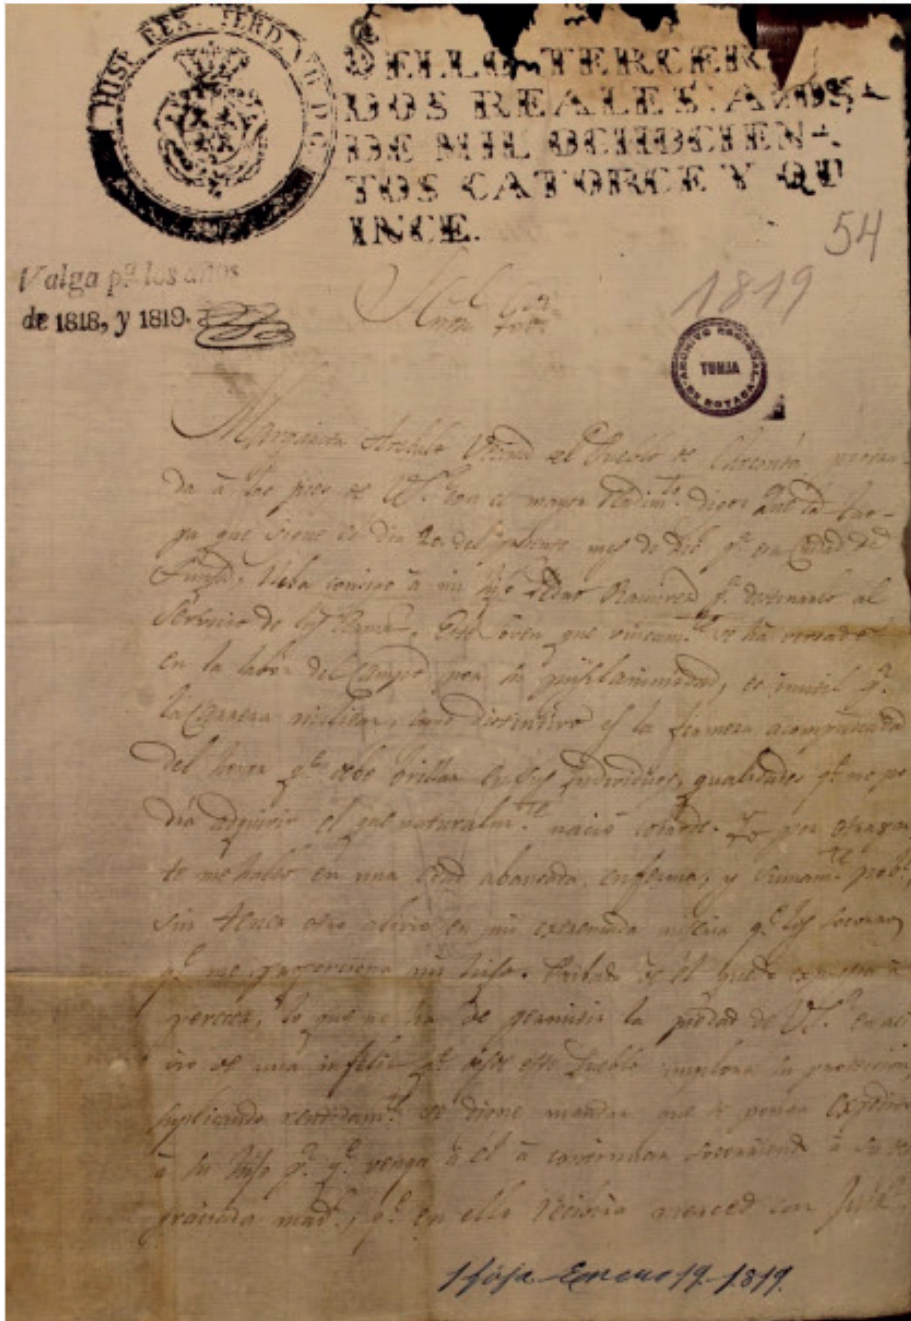 HISP. REX. FERD. VII. D. G.
SELLO TERCERO
DOS REALES: AÑOS
DE MIL OCHOCIEN-
TOS CATORCE Y QU
INCE.
54
Valga pª. los años
de 1818, y 1819.
1819
ARCHIVO REGIONAL
TUNJA
DE BOYACA
Margarita vecina del Pueblo de
da à los pies de VS. con el mayor rendimto. dice: Que la tro-
pa que siguió el dia 20. del presente mes de pª. esa Ciudad de
Tunja, lleba consigo à mi hijo Pedro Ramirez pª. destinarlo al
servicio de las Armas. Este joven que unicamte. se ha versado
en la labor del Campo por su pusilanimidad, es inutil pª.
la Carrera militar, cuyo distintivo es la firmeza acompañada
del honor qe. debe brillar en sus individuos, qualidades qe. no po
drá adquirir el que naturalmte. nació cobarde. Yo por otra par
te me hallo en una edad abanzada, enferma, y sumamte. pobre,
sin tener otro alivio en mi extremada miseria qe. los socorros
qe. me proporciona mi hijo. Pribada de él quedo expuesta à
perecer, lo que no ha de permitir la piedad de VS. en ali
vio de una infeliz qe. desde este Pueblo implora su proteccion,
suplicando rendidamte. se digne mandar que se ponga
à su hijo pª. qe. venga à él à continuar socorriendo à su des
graciada made., qe. en ello recibirá merced con Justª.
1 foja - Enero 19-1819.